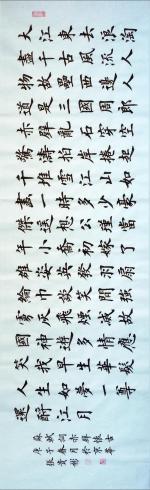 大江東去浪淘
盡千古風流人
物故壘西邊人
道是三國周郎
赤壁亂石穿空
驚濤拍岸捲起
千堆雪江山如
畫一時多少豪
傑遙想公瑾當
年小喬初嫁了
雄姿英發羽扇
綸巾談笑間強
虜灰飛煙滅故
國神遊多情應
笑我早生華髮
人生如夢一尊
還酹江月
蘇軾詞赤壁懷古